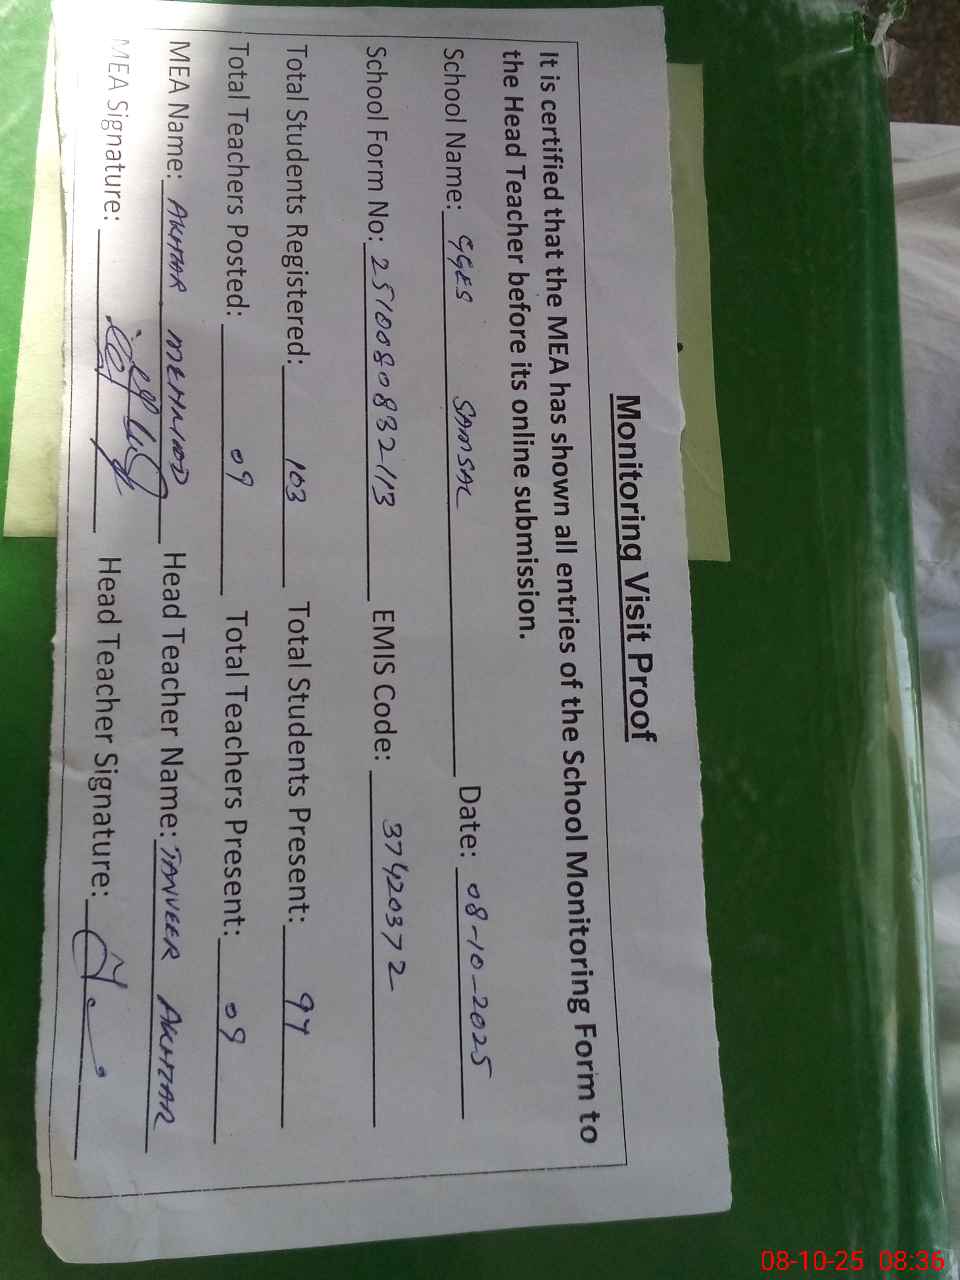 Monitoring Visit Proof
It is certified that the MEA has shown all entries of the School Monitoring Form to
the Head Teacher before its online submission.
School Name: GGES SAMSAL Date: 08-10-2025
School Form No: 2510080832113 EMIS Code: 37420372
Total Students Registered: 103 Total Students Present: 94
Total Teachers Posted: 09 Total Teachers Present: 09
MEA Name: AKHTAR MEHMOOD Head Teacher Name: TANVEER AKHTAR
MEA Signature: Head Teacher Signature:
08-10-25 08:36